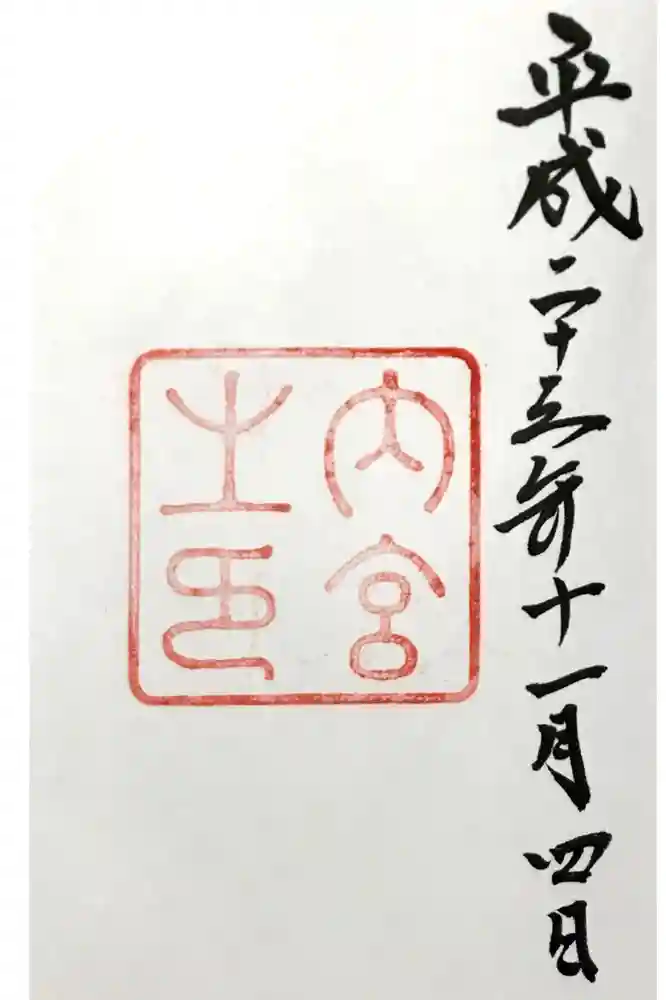 平成二十三年十一月四日
内宮之印